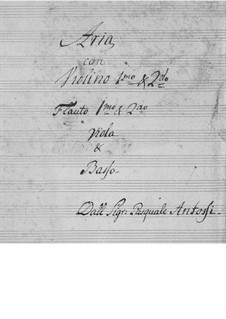 Aria
con
Violino 1mo & 2do
Flauto 1mo & 2do
Viola
&
Basso.
Dall Sigr. Pasquale Antossi